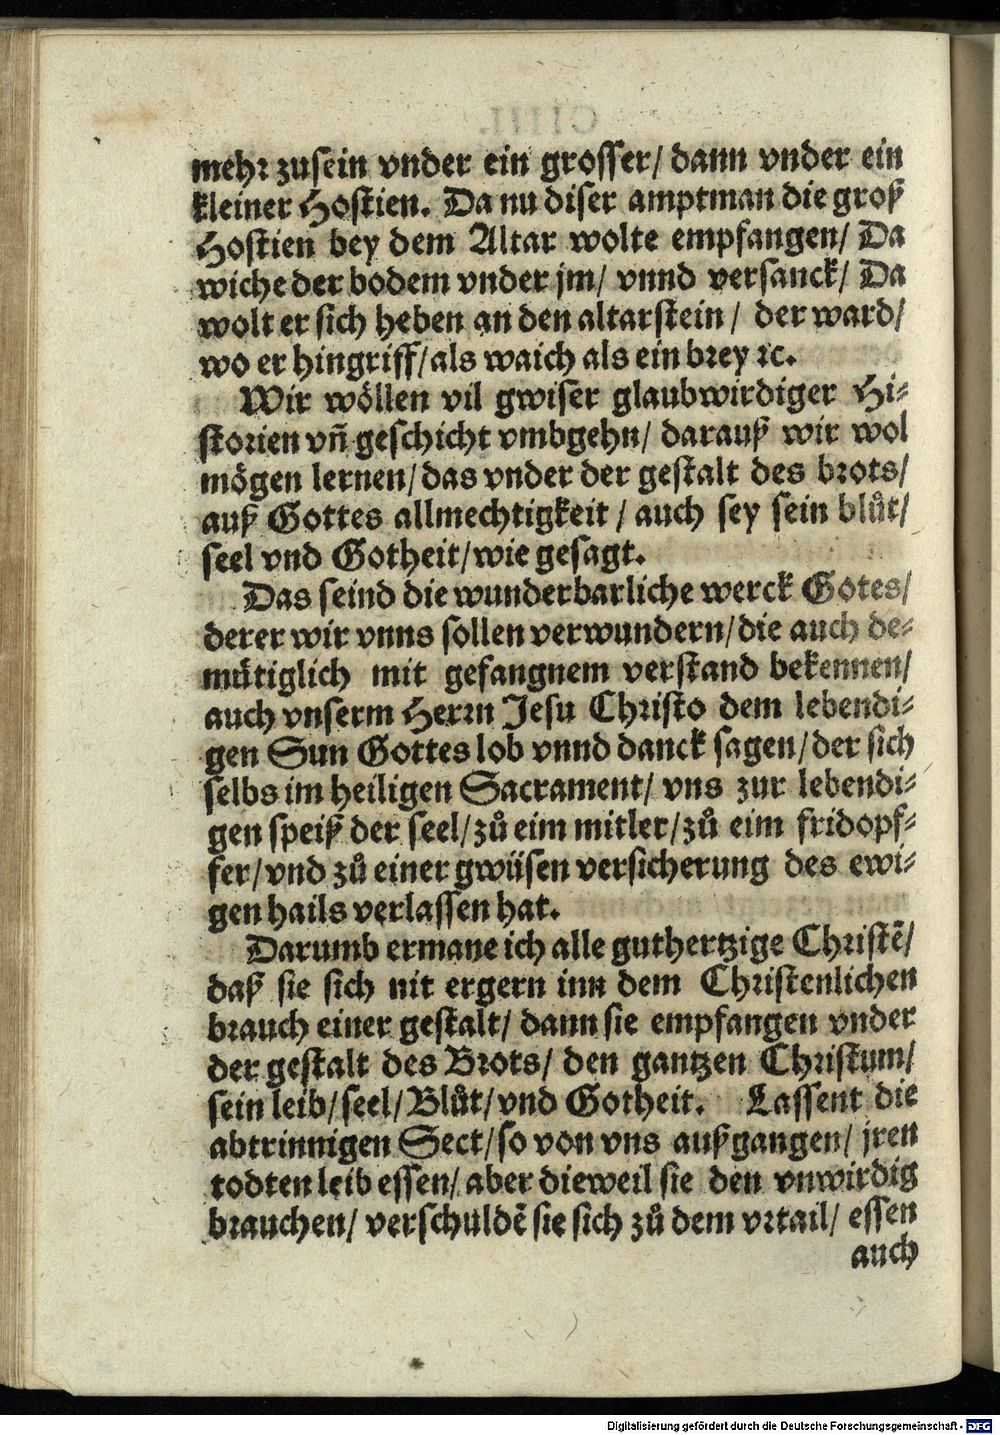 mehr zusein vnder ein grosser/ dann vnder ein
kleiner Hostien. Da nu diser amptman die groß
Hostien bey dem Altar wolte empfangen/ Da
wiche der bodem vnder jm/ vnnd versanck/ Da
wolt er sich heben an den altarstein/ der ward/
wo er hingriff/als waich als ein brey ꝛc.
Wir wöllen vil gwiser glaubwirdiger Hi-
storien vñ geschicht vmbgehn/ darauß wir wol
mögen lernen/das vnder der gestalt des brots/
auß Gottes allmechtigkeit/ auch sey sein blůt/
seel vnd Gotheit/wie gesagt.
Das seind die wunderbarliche werck Gotes/
derer wir vnns sollen verwundern/die auch de-
mütiglich mit gefangnem verstand bekennen/
auch vnserm Herrn Jesu Christo dem lebendi-
gen Sun Gottes lob vnnd danck sagen/der sich
selbs im heiligen Sacrament/ vns zur lebendi-
gen speiß der seel/zů eim mitler/zů eim fridopf-
fer/vnd zů einer gwiisen versicherung des ewi-
gen hails verlassen hat.
Darumb ermane ich alle guthertzige Christē/
daß sie sich nit ergern inn dem Christenlichen
brauch einer gestalt/ dann sie empfangen vnder
der gestalt des Brots/ den gantzen Christum/
sein leib/seel/Blůt/vnd Gotheit. Lassent die
abtrinnigen Sect/so von vns außgangen/ jren
todten leib essen/aber dieweil sie den vnwirdig
brauchen/ verschuldē sie sich zů dem vrtail/ essen
auch
Digitalisierung gefördert durch die Deutsche Forschungsgemeinschaft - DFG